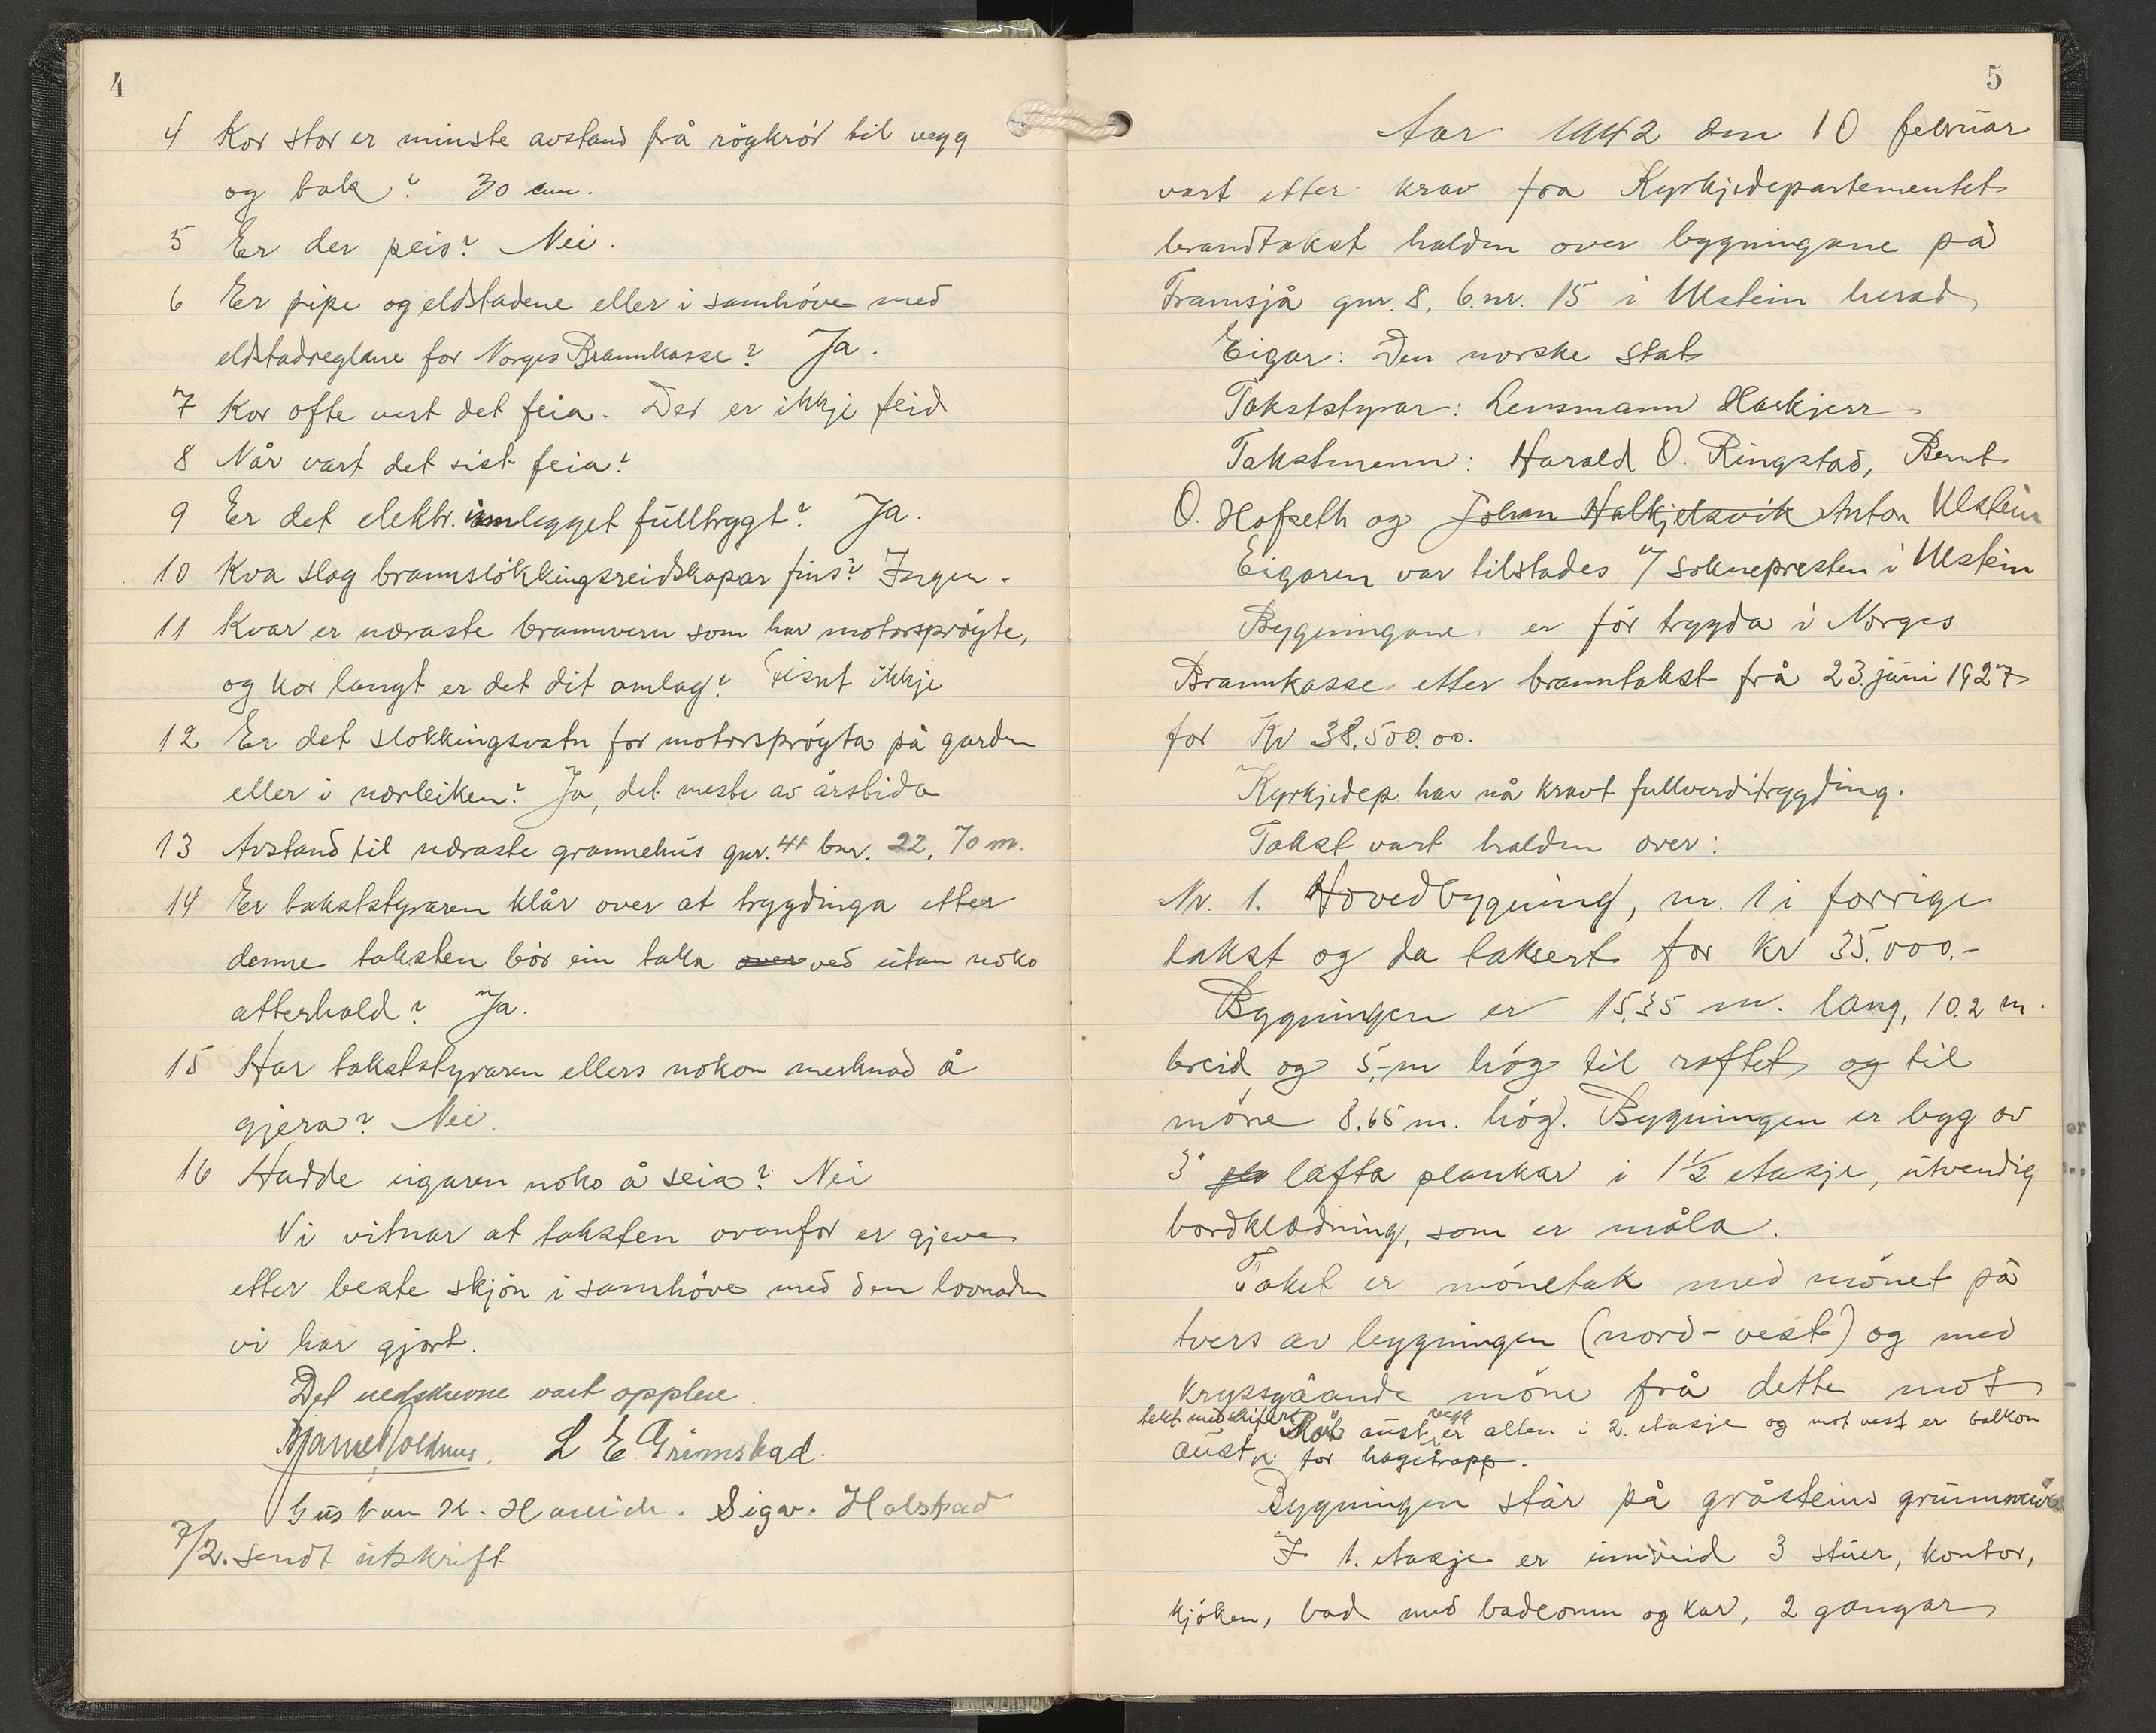 4
4 Kor stor er minste avstand frå røykrør til vegg
og tak? 30 cm.
5 Er der peis? Nei.
6 Er pipe og eldstadene eller i samhøve med
eldstadreglane for Norges Brannkasse? Ja.
7 Kor ofte vert det feia. Det er ikkje feid
8 Når vart det sist feia?
9 Er det elektr. innlegget fulltrygt? Ja.
10 Kva slag brannsløkkingsreidskapar fins? Ingen.
11 Kvar er næraste brannvern som har motorsprøyte,
og kor langt er det dit omlag? Fisnt ikkje
12 Er det sløkkingsvatn for motorsprøyta på garden
eller i nærleiken? Ja, det meste av årstida
13 Avstand til næraste grannehus gnr. 41 bnr. 22, 70 m.
14 Er takststyraren klår over at trygdinga etter
denne taksten bør ein taka over ved utan noko
atterhald? Ja.
15 Har takststyraren ellers nokon merknad å
gjera? Nei.
16 Hadde eigaren noko å seia? Nei
Vi vitnar at taksten ovanfor er gjeve
etter beste skjøn i samhøve med den lovnaden
vi har gjort.
Det nedskrevne vart opplese
L E Grimstad.
Gustav K. Hareide. Sigv. Halstad
7/2. sendt utskrift
5
Aar 1942 den 10 februar
vart etter krav fra Kyrkjedepartementet
brandtakst halden over bygningane på
Framsjå gnr. 8, b.nr. 15 i Ulstein herad,
Eigar: Den norske stat
Takststyrar: Lensmann Haskjerr.
Takstmenn: Harald O. Ringstad, Bernt
O. Hofseth og Johan Halkjelsvik Anton Ulstein
Eigaren var tilstades v/ soknepresten i Ulstein
Bygningane er før trygda i Norges
Brannkasse etter branntakst frå 23. juni 1927
for Kr 38.500.00.
Kyrkjedep. har nå kravt fullverditrygding.
Takst vart halden over:
Nr. 1. Hovedbygning, nr. 1 i forrige
takst og da taksert for kr 35.000.-
Bygningen er 15.35 m. lang, 10.2 m.
breid og 5,- m høg til raftet og til
møne 8.65 m. høg. Bygningen er bygg av
3" pla lafta plankar i 1 1/2 etasje, utvendig
bordklædning, som er måla.
Taket er mønetak med mønet på
tvers av bygningen (nord-vest) og med
kryssgåande møne frå dette mot
tekt med skifer. Mot aust vegg er alten i 2. etasje og mot vest er balkon
aust, for hagetrapp.
Bygningen står på gråsteins grunnmur
I 1. etasje er innreid 3 stuer, kontor,
kjøken, bad med badeomn og kar, 2 gangar